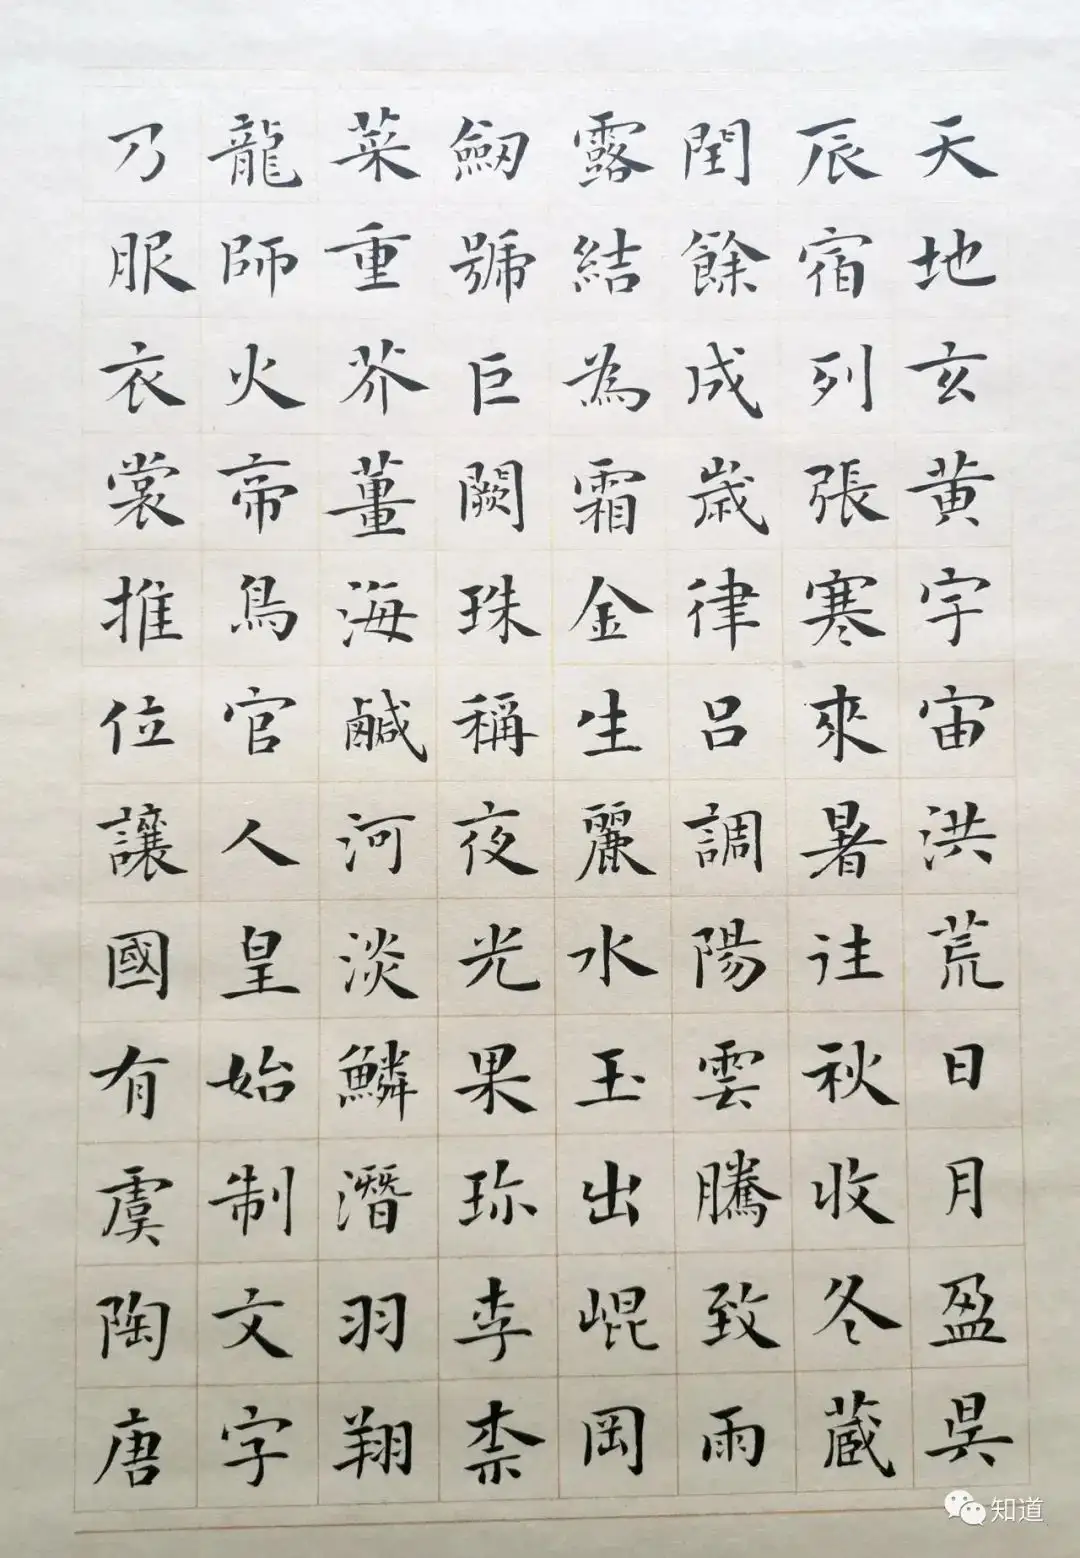 天地玄黄宇宙洪荒日月盈昃
辰宿列張寒來暑往秋收冬蔵
閏餘成歲律呂調陽雲騰致雨
露結為霜金生麗水玉出崐岡
劔號巨闕珠稱夜光果珎李柰
菜重芥薑海鹹河淡鱗潛羽翔
龍師火帝鳥官人皇始制文字
乃服衣裳推位讓國有虞陶唐
知道